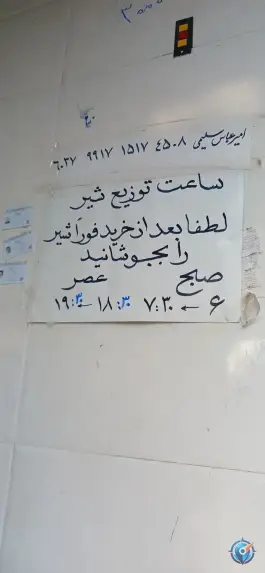 امیرعباس سلیمی ۴۵۰۸ ۱۵۱۷ ۹۹۱۷ ۶۰۳۷
ساعت توزیع شیر
لطفا بعد از خرید فوراً شیر
را بجوشانید
صبح عصر
۶ ← ۷:۳۰ ۱۸:۳۰ ← ۱۹:۳۰